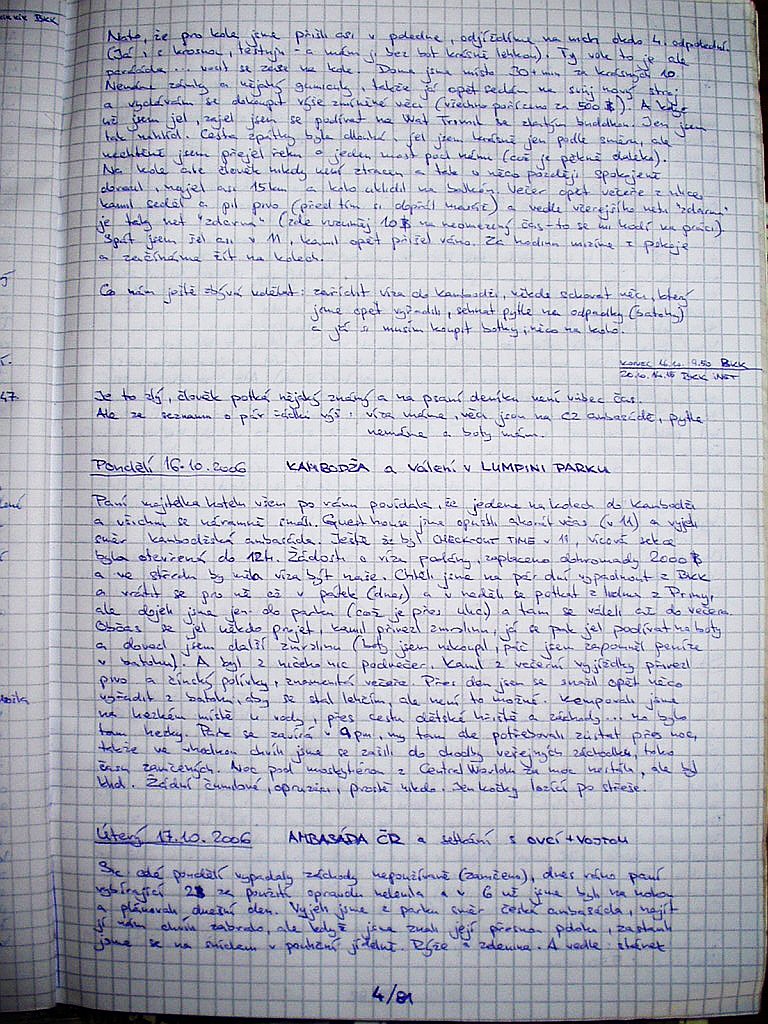 Nato, že pro kola jsme přišli asi v poledne, odjíždíme na nich okolo 4. odpolední.
(Já i s krosnou, těžkou - a mám ji bez bot krásně lehkou). Ty vole to je ale
paráda... vozit se zase na kole. Doma jsme místo 30+min za krásných 10.
Nemáme zámky a nějaký gumicuky, takže já opět sedám na svůj nový stroj
a vydávám se dokoupit výše zmíněné věci (všechno pořízeno za 500 ฿) A když
už jsem jel, zajel jsem se podívat na Wat Traimit se zlatým buddhou. Jen jsem
tak nahlíd. Cesta zpátky byla dlouhá, jel jsem krásně jen podle směru, ale
nechtěně jsem přejel řeku o jeden most pod námi (což je pěkně daleko).
Na kole ale člověk nikdy není ztracen a tak o něco později spokojeně
dorazil, najel asi 15km a kolo uklidil na balkón. Večer opět večeře z ulice,
kamil seděl a pil pivo (před tím si dopřál masáž) a vedle včerejšího netu "zdarma"
je taky net "zdarma" (zde rozuměj 10฿ na neomezený čas - to se mi hodí na práci)
Spát jsem šel asi v 11, kamil opět přišel ráno. Za hodinu mizíme z pokoje
a začínáme žít na kolech.
Co nám ještě zbývá udělat: zařídit víza do kambodži, někde schovat věci, který
jsme opět vyřadili, sehnat pytle na odpadky (batohy)
a já si musím koupit botky, něco na kolo.
konec 9.50 BKK
BKK iNET
Je to zlý, člověk potká nějaký známý a na psaní deníku není vůbec čas.
Ale ze seznamu o pár řádků výš: víza máme, věci jsou na CZ ambasádě, pytle
nemáme a boty mám.
Pondělí 16.10.2006 KAMBODŽA a válení v LUMPINI PARKU
Paní majitelka hotelu všem po ránu povídala, že jedeme na kolech do Kambodži
a všichni se náramně smáli. Guest house jsme opustili akorát včas (v 11) a vyjeli
směr kambodžská ambasáda. Ještě že byl CHECK-OUT TIME v 11, vízová sekce
byla otevřená do 12h. Žádosti o víza podány, zaplaceno dohromady 2000 ฿
a ve středu by měla víza být naše. Chtěli jsme na pár dní vypadnout z BKK
a vrátit se pro ně až v pátek (dnes) a v neděli se potkat z lidma z Prahy,
ale dojeli jsme jen do parku (což je přes ulici) a tam se váleli až do večera.
Občas se jel někdo projet, kamil přivezl zmrzlinu, já se pak jel podívat na boty
a dovezl jsem další zmrzlinu (boty jsem nekoupil, páč jsem zapomněl peníze
v batohu). A byl z ničeho nic podvečer. Kamil z večerní vyjížďky přivezl
pivo a čínský polívky, znamenitá večeře. Přes den jsem se snažil opět něco
vyřadit z batohu, aby se stal lehčím, ale není to možné. Kempovali jsme
na hezkém místě u vody, přes cestu dětské hřiště a záchody... no bylo
tam hezky. Park se zavírá v 9pm, my tam ale potřebovali zůstat přes noc,
takže ve vhodnou chvíli jsme se zašili do chodby veřejných záchodků, toho
času zavřených. Noc pod moskytiérou z Central Worldu za moc nestála, ale byl
klid. Žádní čumilové, opruzáci, prostě nikdo. Jen kočky lozící po střeše.
Úterý 17.10.2006 AMBASÁDA ČR a setkání s ovcí + VOJTOU
Sic celé pondělí vypadaly záchody nepoužívaně (zamčeno), dnes ráno paní
vybírající 2฿ za použití opravdu nelenila a v 6 už jsme byli na nohou
a plánovali dnešní den. Vyjeli jsme z parku směr česká ambasáda, najít
jí nám chvíli zabralo, ale když jsme znali její přesnou polohu, zastavili
jsme se na snídani v pouliční jídelně. Rýže a zelenina. A vedle
4/81